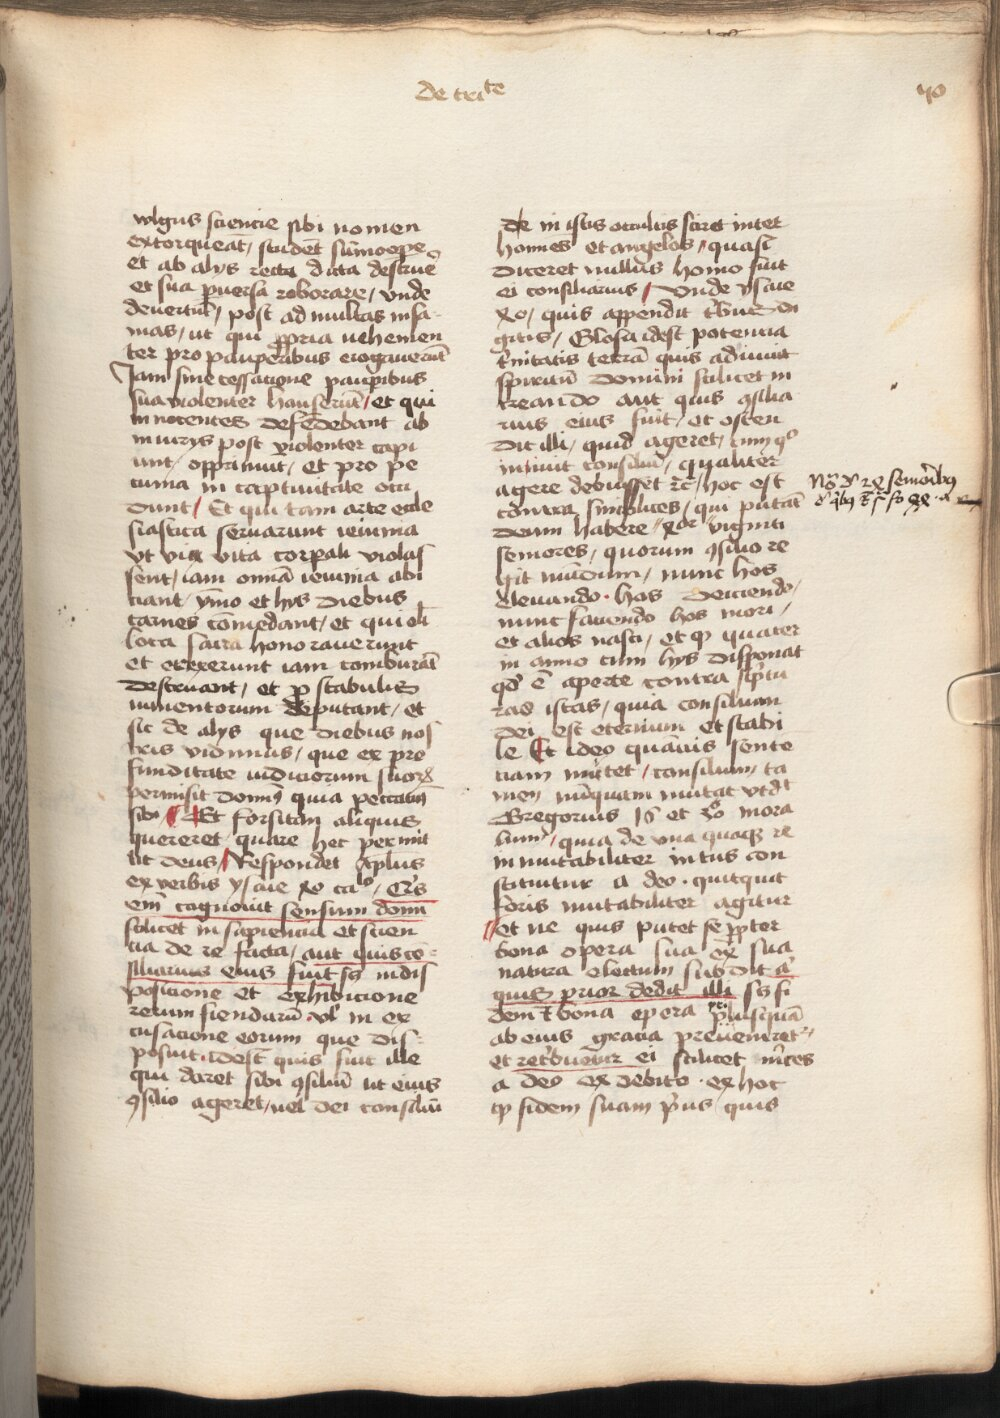 De trīte
40
wlgus sciencie sibi nomen
extorqueat, studēt sūmoope
et ab alys recta dicta destruē
et sua puersa roborare, unde
devertūt, post ad multas infa
mias, ut qui ppria uehemen
ter pro pauperibus erogauerūt
Jam sine cessacione paupibus
sua violenter hauseriūt, et qui
innocentes defēdebant ab
iniurys post violenter capi
unt, opprimūt, et pro pe
cunia in captiuitate occi
dunt, Et qui tam arte eccle
siastica seruarunt ieiunia
ut vix vita corpali violas
sent, iam omnā ieiunia abi
ciant, ymo et hys diebus
carnes cōmedant, et qui oli
loca sacra honorauerunt
et erexerunt iam comburāt
destruant, et p stabulis
iumentorum deputant, et
sic de alys que diebus nos
tris vidimus, que ex pro
funditate iudiciorum suorꝝ
permisit domin quia peccatū
sibi Et forsitan aliquis
quereret, quare hec permit
tit deus, Respondet apl̄us
ex verbis ysaie xl cao, Quis
eni cognouit sensum domi
scilicet in sapiencia et scien
cia de re facta, aut quis cō
siliarius eius fuit scꝫ in dis
posicione et exhibicione
rerum fiendarū vl in ex
cusacione eorum que dis
posuit. Idest quis fuit ille
qui daret sibi ꝯsiliū ut eius
ꝯsilio ageret, uel dei consiliū
de in istis occultis sciret inter
homines et angelos, quasi
diceret nullus homo fuit
ei consiliarius, Unde ysaie
xlo, quis appendit tribus di
gitis, Glosa idest potencia
trinitatis terrā quis adiuuit
spiritū domini scilicet in
creando aut quis ꝯsilia
rius eius fuit, et osten
dit illi, quid ageret, cum qo
iniuit consiliū, qualiter
agere debuisset rc, hoc est
contra simplices, qui putāt
deum habere xxor viginti
seniores, quorum ꝯsilio re
git mūdum, nunc hos
eleuando. hos deiciendo,
nunc faciendo hos mori,
et alios nasci, et ꝙ quater
in anno cum hys disponat
qd ē aperte contra scptu
ras istas, quia consilium
dei est eternum et stabi
le Et ideo quauis sente
ciam mutet, consilium ta
men nunquam mutat utdt
Gregorius 16 et 20 mora
lium, quia de una quaqꝫ re
inmutabiliter intus con
stituitur a deo. quitquit
foris mutabiliter agitur
et ne quis putet se ppter
bona opera sua ex sua
natura electum subdit a
quis prior dedit illi scꝫ fi
dem et bona opera pluscquā
ab eius gracia preueniret
et retribuetur ei scilicet mices
a deo ex debito. ex hoc
ꝙ fidem suam prius quis